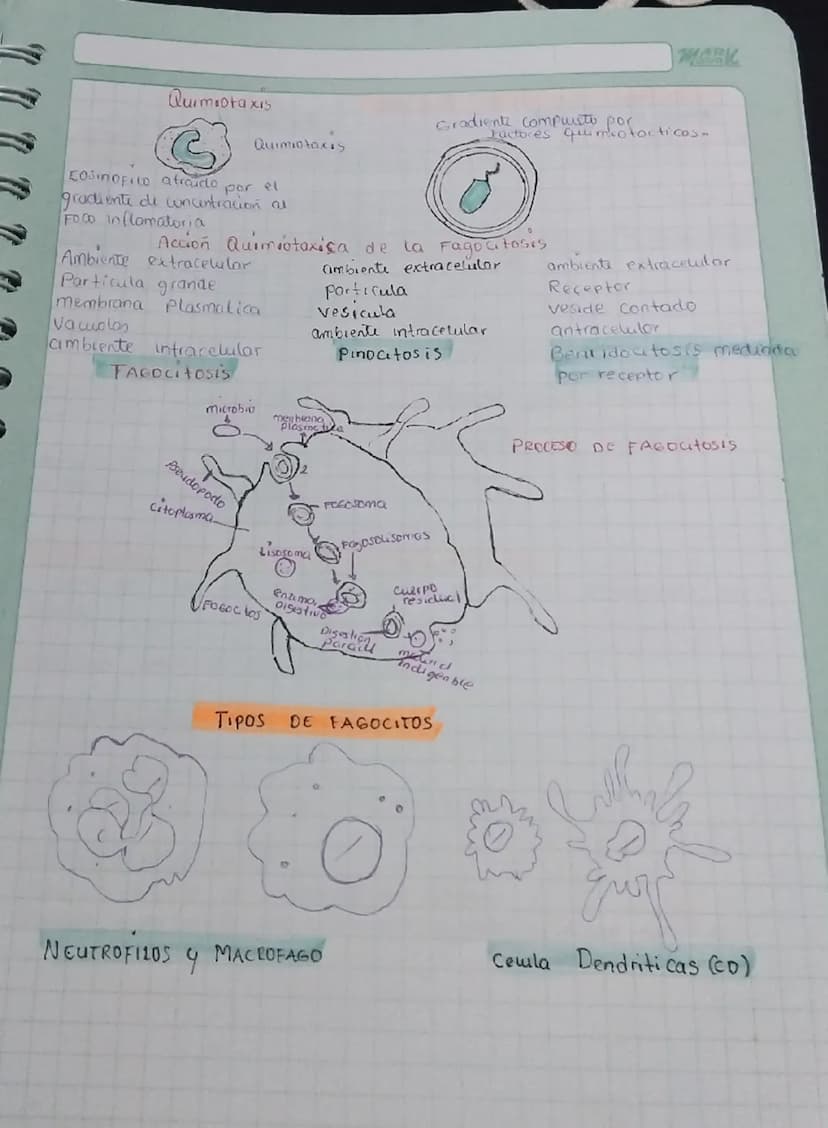 MARK
Quimiotaxis
Quimiotaxis
Gradiente compuesto por
factores quimiotacticos.
Eosinofilo atraido por el
gradiente de concentración al
Foco inflamatoria
Acción Quimiotaxica de la Fagocitosis
Ambiente extracelular
Particula grande
membrana Plasmatica
Vacuolas
ambiente intracelular
FAGOCITOSIS
ambiente extracelular
particula
vesicula
ambiente intracelular
PINOCITOSIS
ambiente extracelular
Receptor
contado
antracelular
mediada
por receptor
PROCESO DE FAGOCITOSIS
microbio
menbrana
plasmatica
Pseudopodo
2
citoplasma
FOGOSOMA
Lisosoma
Fagosolisomas
enzima
Digestiva
cuerpo
residual
FOGOCITOS
Digestion
indigenble
TIPOS DE FAGOCITOS
NEUTROFILOS y MACROFAGO
Celula Dendriticas (CD)